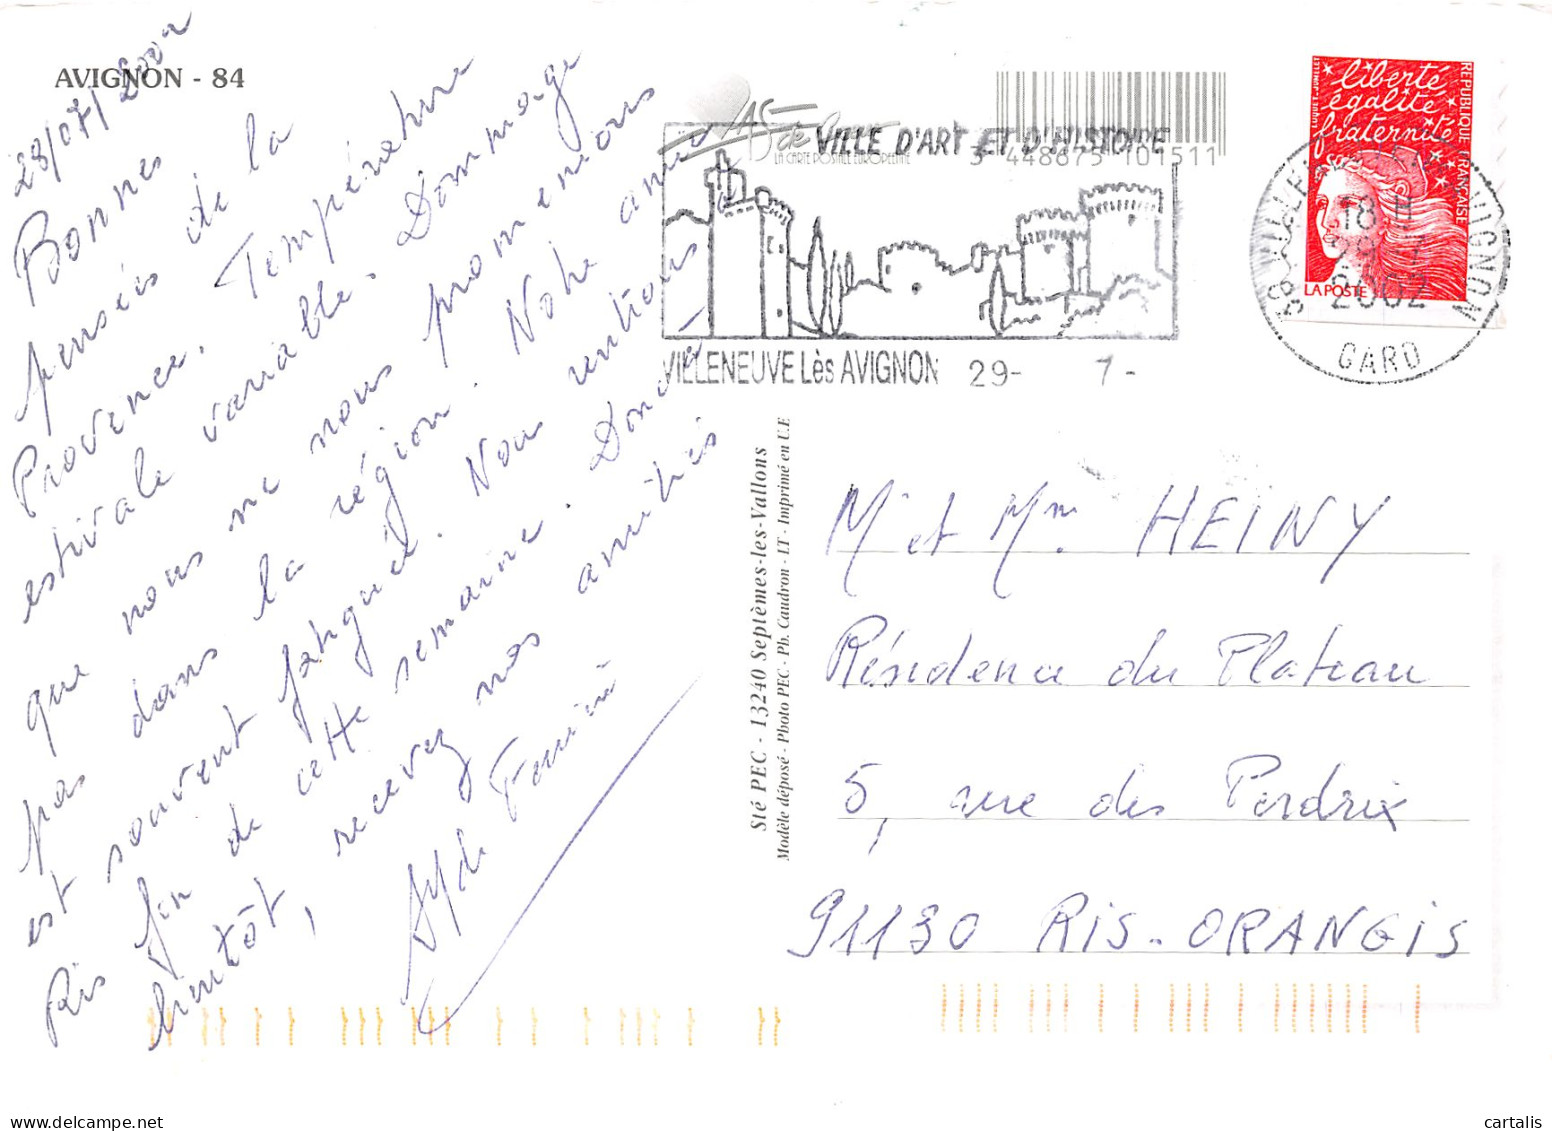 AVIGNON - 84
28/07/2002
Bonnes
pensées de la
Provence. Température
estivale variable. Dommage
que nous ne nous promenions
pas dans la région. Notre amie
est souvent fatiguée. Nous rentrons
Ris fin de cette semaine. Donc à
bientôt, recevez nos amitiés
VILLE D'ART ET D'HISTOIRE
AS de Coeur
LA CARTE POSTALE EUROPEENNE
3 448875 101511
VILLENEUVE Lès AVIGNON 29- 7-
liberté
égalité
fraternité
REPUBLIQUE FRANÇAISE
LUQUET-JUMELET
LA POSTE
18 H
2002
GARD
Sté PEC - 13240 Septèmes-les-Vallons
Modèle déposé - Photo PEC - Ph. Caudron - LT - Imprimé en U.E
Mr et Mme HEINY
Résidence du Plateau
5, rue des Perdrix
91130 RIS-ORANGIS
www.cartalis.com
cartalis